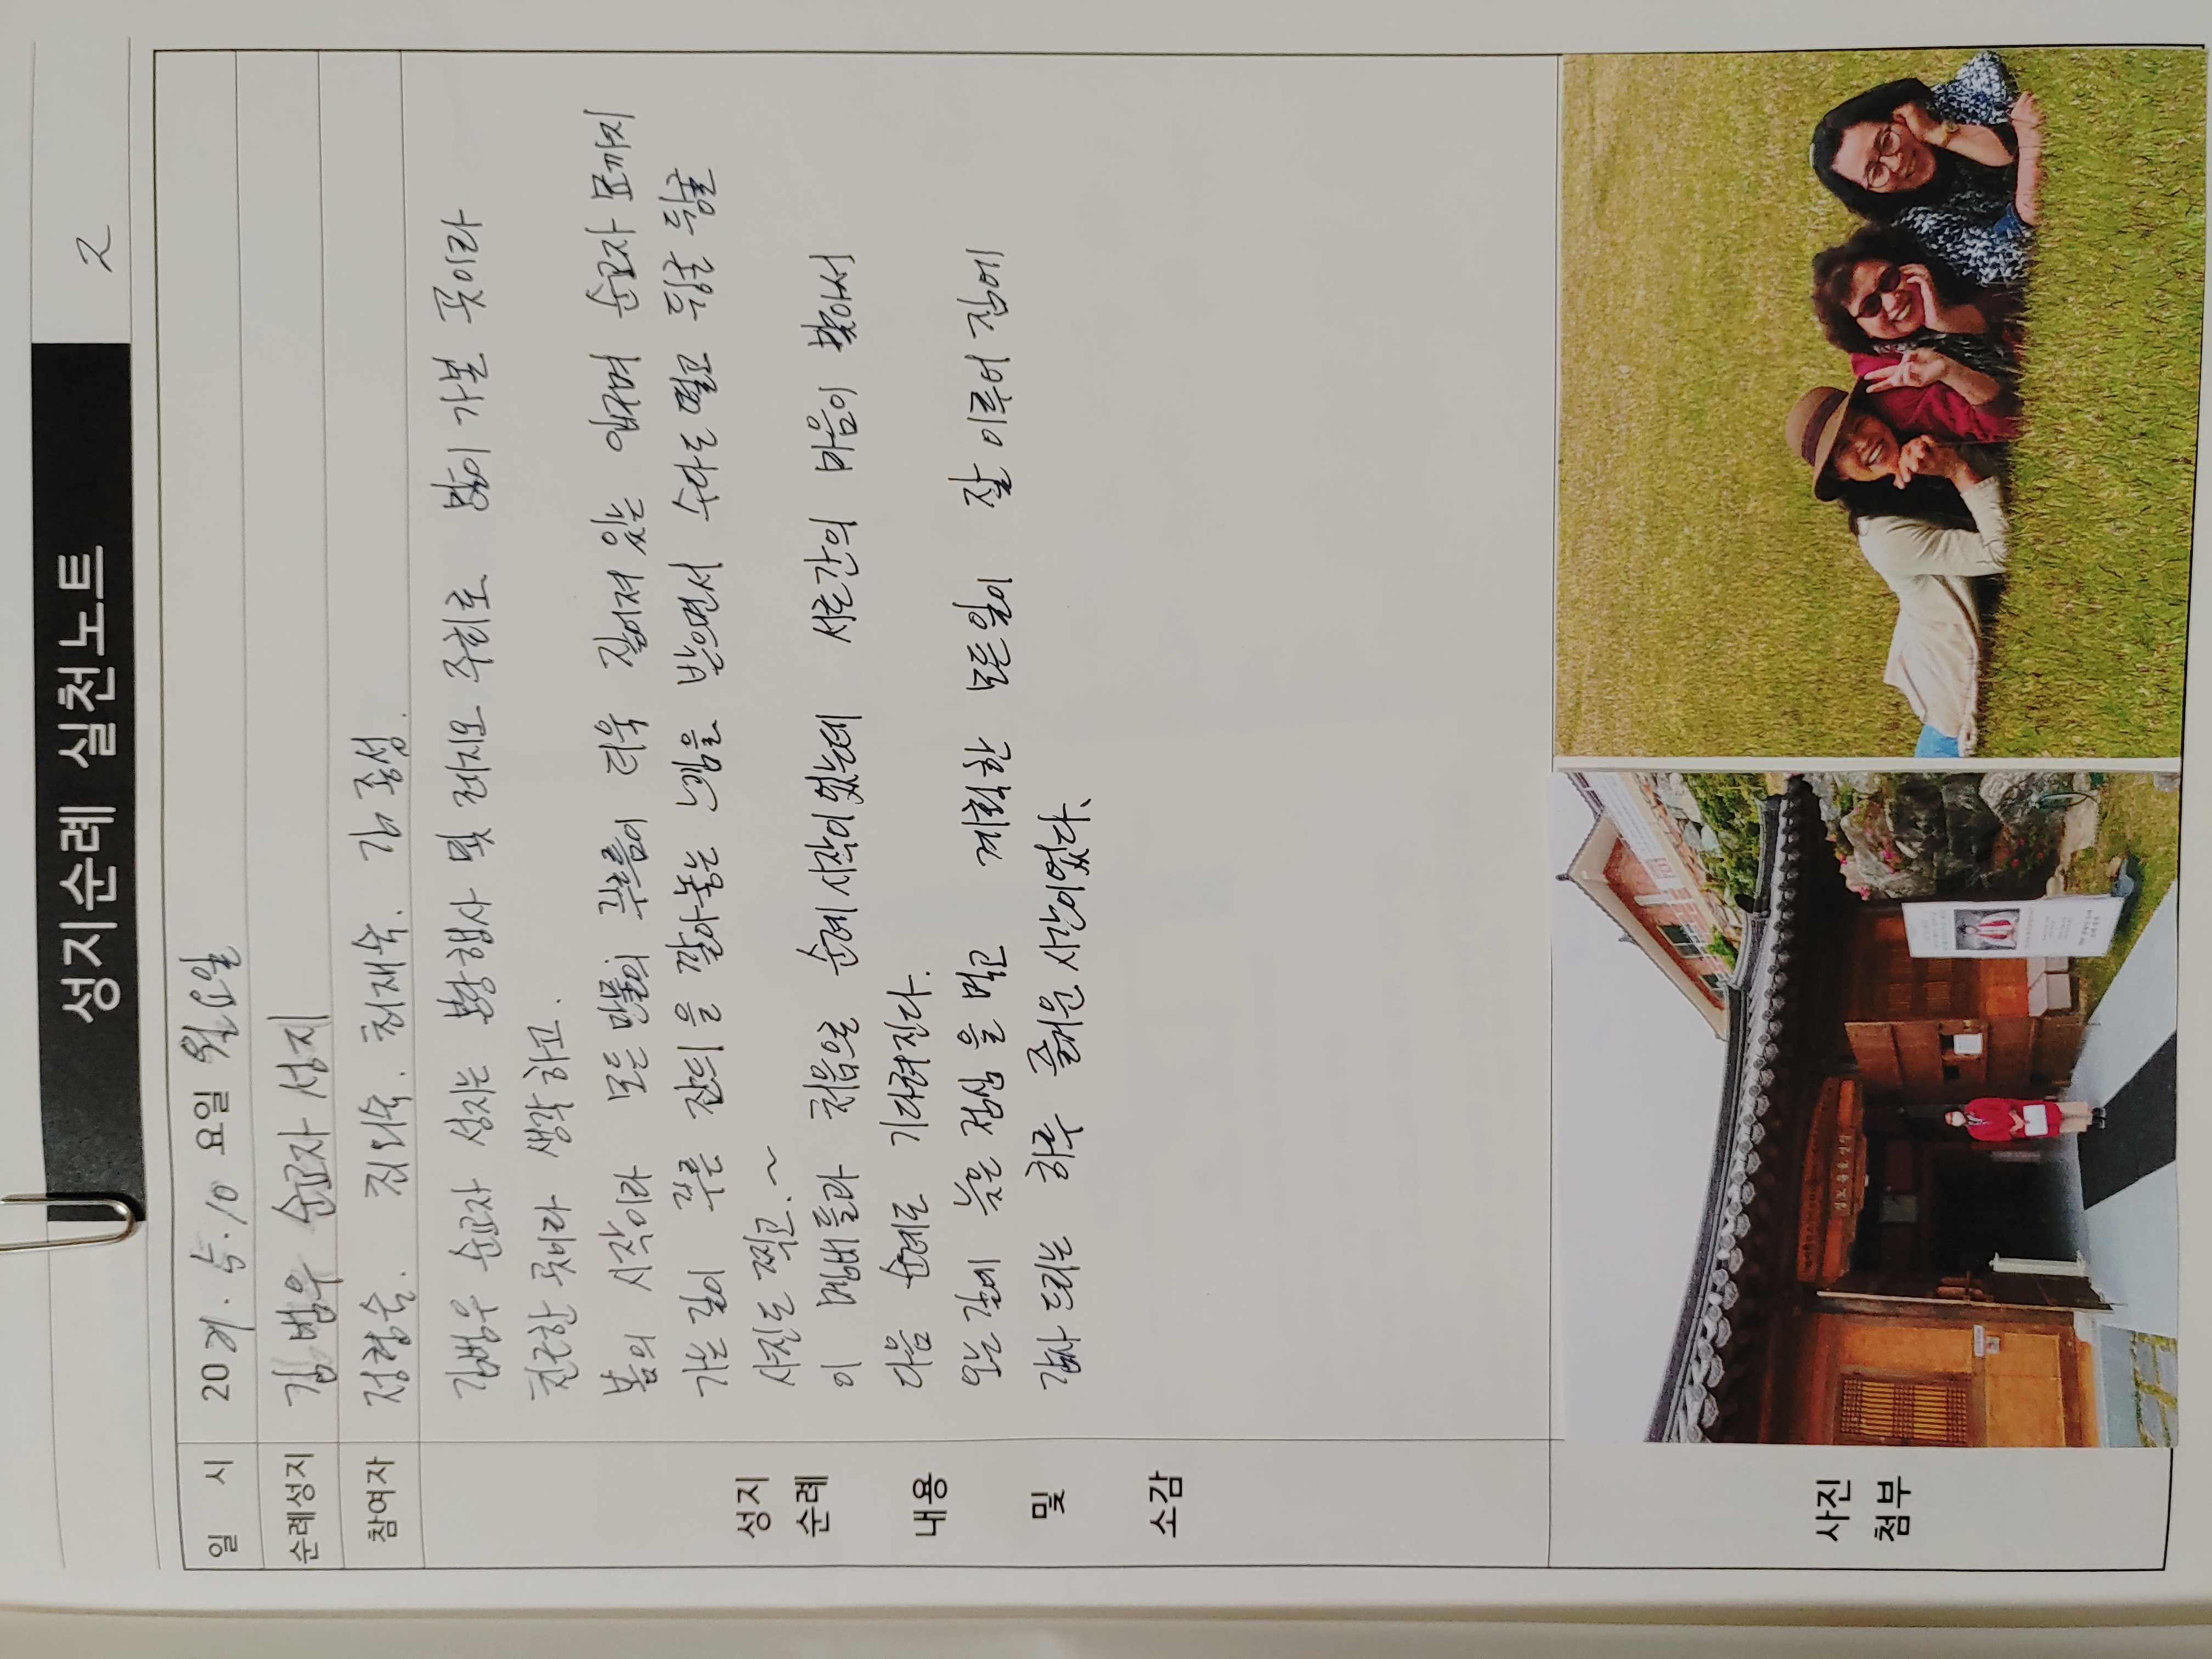 성지순례 실천노트 2
일 시 2021. 5. 10 요일 월요일
순례성지 김범우 순교자 성지
참여자 정형숙. 최외숙. 최재숙. 김종성.
김범우 순교자 성지는 본당행사 및 레지오 주회로 많이 가본 곳이라
친근한 곳이라 생각하고.
봄의 시작이라 모든 만물의 푸르름이 더욱 짙어져 있는 입구며 순교자 묘까지
가는 길이 푸른 잔듸을 깔아놓는 느낌을 받으면서 수다도 떨고 뒹굴 뒹굴
사진도 찍고.~
이 멤버들과 처음으로 순례 시작이었는데 서로간의 마음이 맞아서
다음 순례도 기다려진다.
오는길에 늦은 점심을 먹고 계획한 모든일이 잘 이루어 짐에
감사 드리는 하루 즐거운 시간이었다.
성지
순례
내용
및
소감
사진
첨부